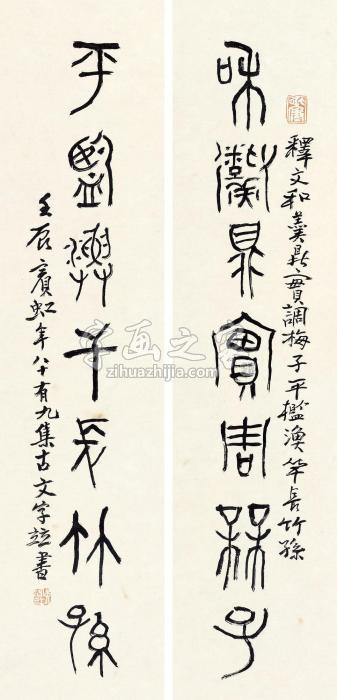 和羹鼎實調梅子
釋文和羹鼎實調梅子平檻漁竿長竹孫
平檻漁竿長竹孫
壬辰賓虹年八十有九集古文字竝書
字画之家
zihuazhijia.com